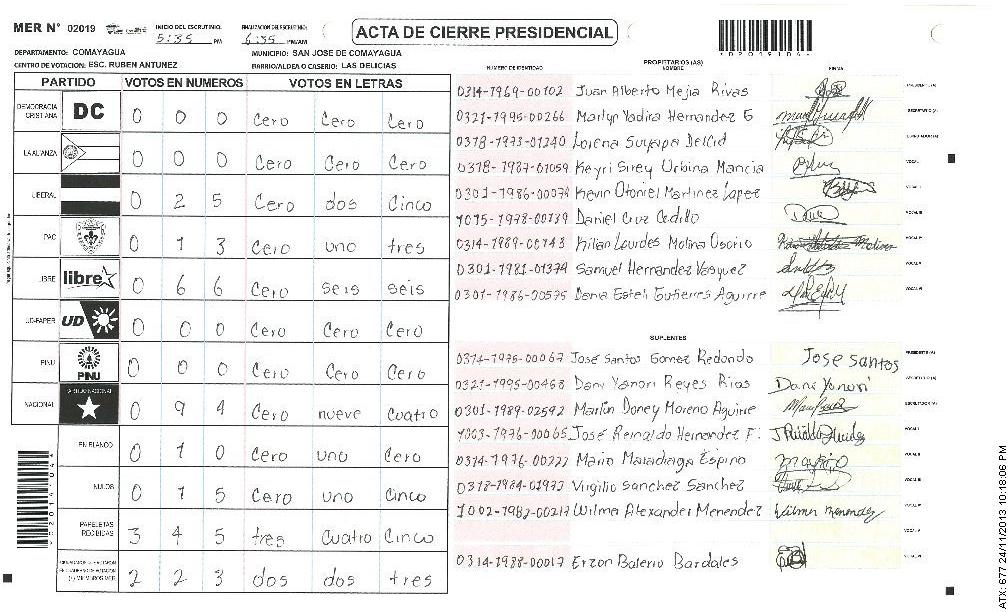 MER N° 02019
INICIO DEL ESCRUTINIO: 5:35 PM
FINALIZACION DEL ESCRUTINIO: 6:35 PM/AM
ACTA DE CIERRE PRESIDENCIAL
DEPARTAMENTO: COMAYAGUA
MUNICIPIO: SAN JOSE DE COMAYAGUA
CENTRO DE VOTACION: ESC. RUBEN ANTUNEZ
BARRIO/ALDEA O CASERIO: LAS DELICIAS
PARTIDO VOTOS EN NUMEROS VOTOS EN LETRAS
DEMOCRACIA CRISTIANA DC 0 0 0 Cero Cero Cero
LA ALIANZA 0 0 0 Cero Cero Cero
LIBERAL 0 2 5 Cero dos Cinco
PAC 0 1 3 Cero uno tres
LIBRE libre 0 6 6 Cero seis seis
UD-FAPER UD 0 0 0 Cero Cero Cero
PINU PINU 0 0 0 Cero Cero Cero
NACIONAL 0 9 4 Cero nueve Cuatro
EN BLANCO 0 1 0 Cero uno Cero
NULOS 0 1 5 Cero uno Cinco
PAPELETAS RECIBIDAS 3 4 5 tres Cuatro Cinco
2 2 3 dos dos tres
NUMERO DE IDENTIDAD PROPIETARIOS (AS) NOMBRE FIRMA
0314-1969-00102 Juan Alberto Mejia Rivas
0321-1995-00266 Marlyn Yadira Hernandez G
0318-1973-01240 Lorena Suyapa Delcid
0318-1987-01059 Keyri Sirey Urbina Mancia
0301-1986-00074 Kevin Otoniel Martinez Lopez
1015-1978-00139 Daniel Cruz Cedillo
0314-1989-00143 Kilian Lourdes Molina Osorio
0301-1981-01374 Samuel Hernandez Vasquez
0301-1986-00575 Dania Esteli Gutierres Aguirre
SUPLENTES
0314-1975-00067 José Santos Gomez Redondo JOSE SANTOS
0321-1995-00468 Dany Yanori Reyes Rios Dany Yanori
0301-1989-02592 Marlin Doney Moreno Aguirre
1003-1976-00065 José Reinaldo Hernandez F.
0314-1976-00222 Mario Maradiaga Espino
0318-1984-01973 Virgilio Sanchez Sanchez
1002-1982-00217 Wilmer Alexander Menendez Wilmer menendez
0314-1988-00017 Erzon Balerio Bardales
ATX: 677.24/11/2013 10:18:06 PM